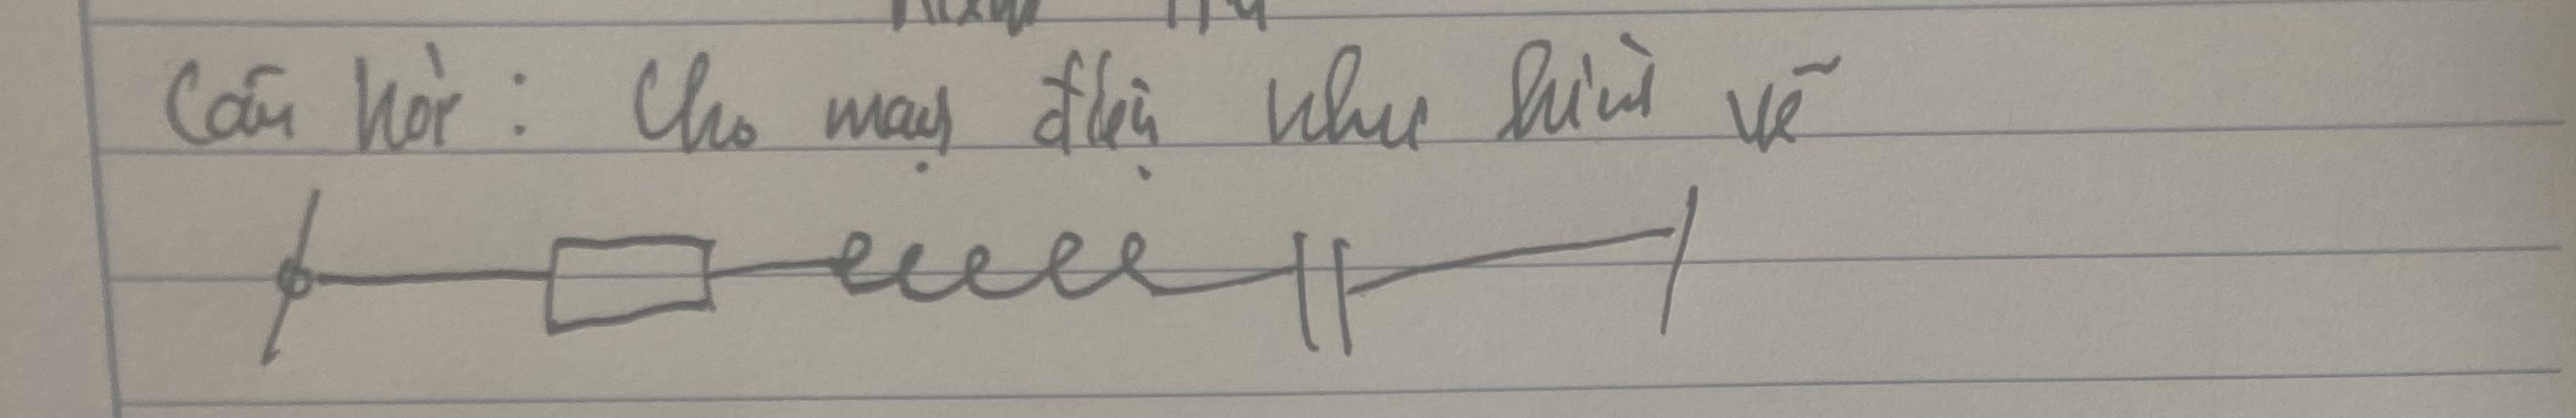 Câu hỏi : Cho mạch điện như hình vẽ